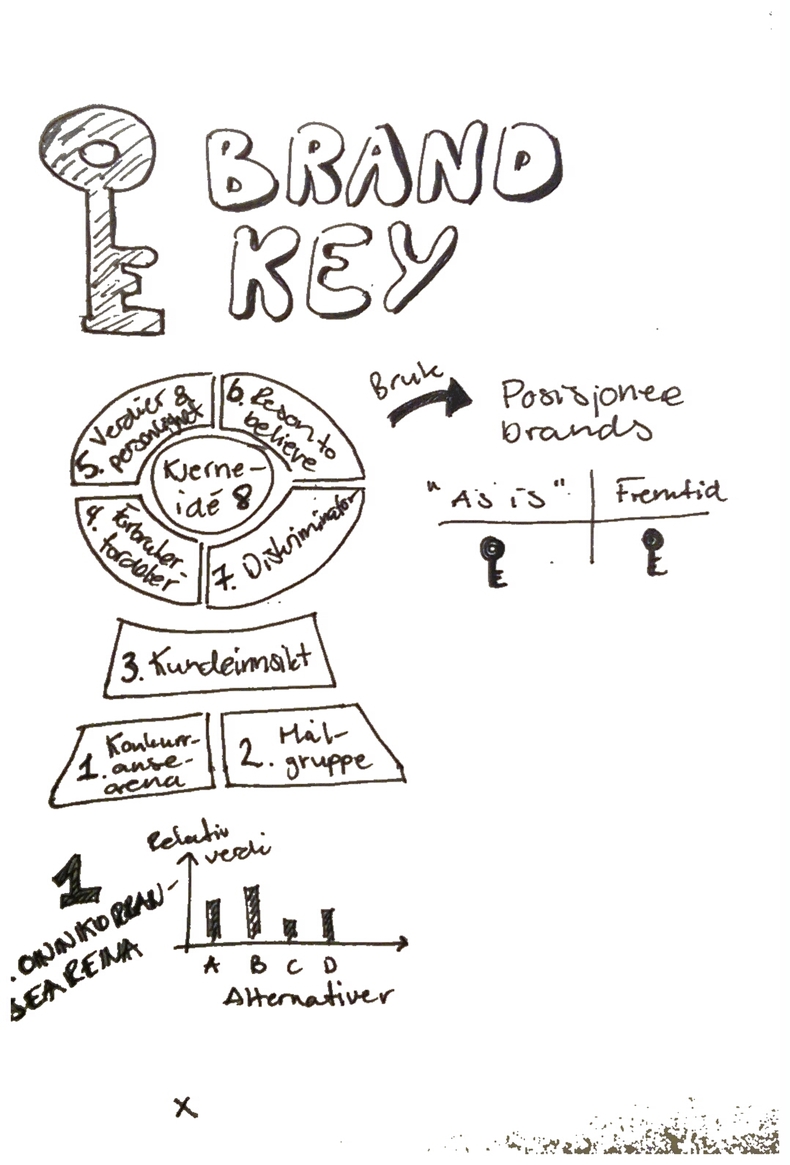 BRAND
KEY
5. Verdier &
personlighet
6. Reson to
believe
Kjerne-
idé 8
4. Forbruker-
fordeler
7. Diskriminator
3. Kundeinnsikt
1. Konkurr-
anse-
arena
2. Mål-
gruppe
Bruk
Posisjonere
brands
"As is"
Fremtid
1
SEARENA
Relativ
verdi
A B C D
Alternativer
x